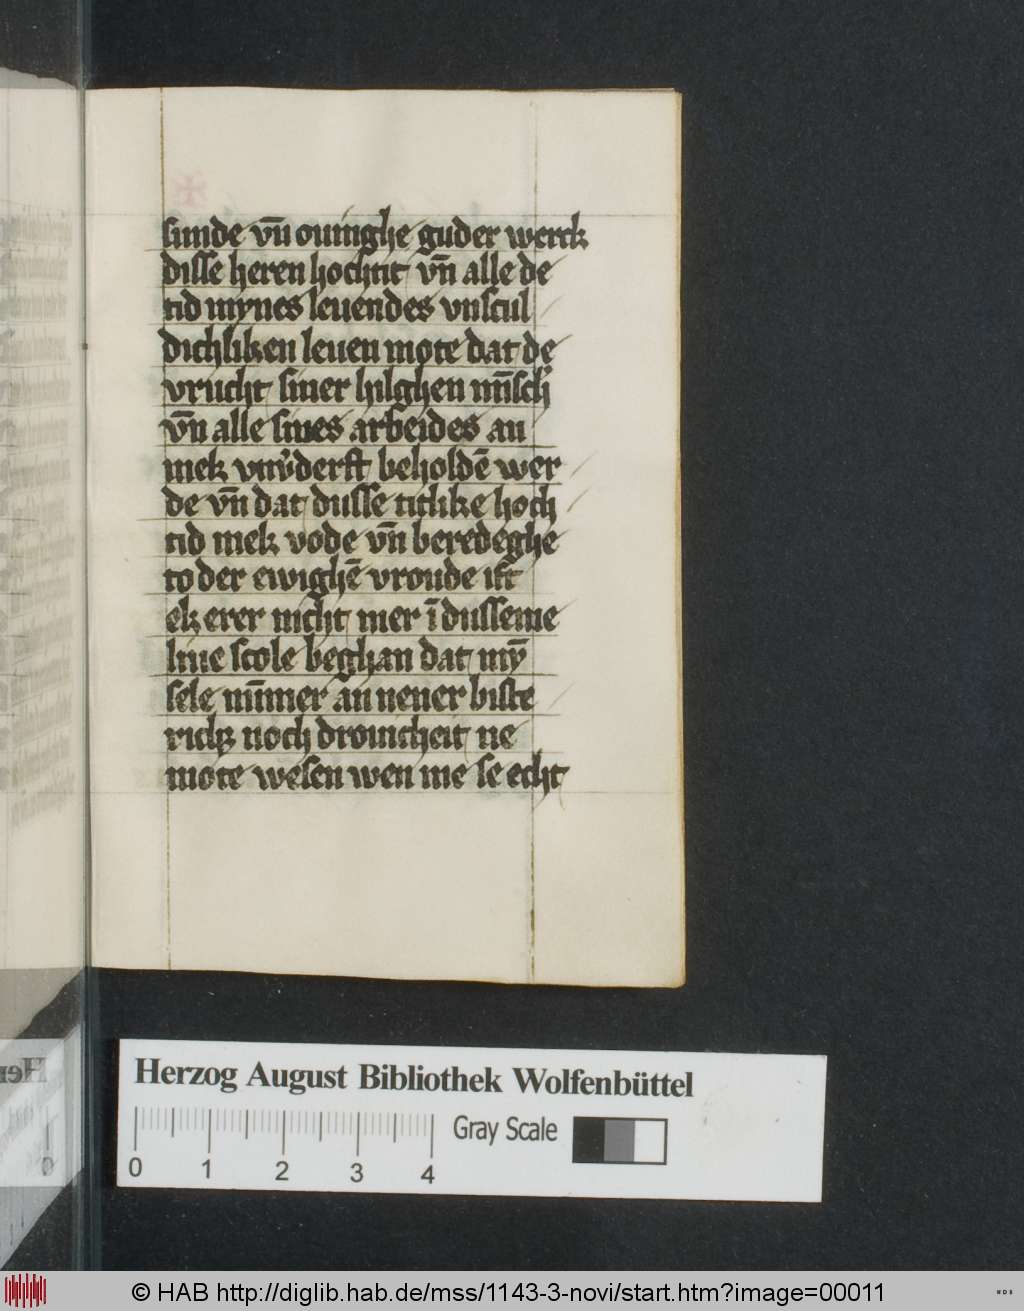 sunde vn̄ ouinghe guder werck
disse heren hochtit vn̄ alle de
tid mynes leuendes vnscul
dichliken leuen mote dat de
vrucht siner hilghen mīsch
vn̄ alle sines arbeides an
mek beholdē wer
de vn̄ dat dusse titlike hoch
tid mek vode vn̄ beredeghe
to der ewighē vroude ift
ek erer nicht mer ī dusseme
liue scole beghan dat mȳ
sele nūmer an nener biste
noch drouicheit ne
mote wesen wen me se echt
Herzog August Bibliothek Wolfenbüttel
Gray Scale
0 1 2 3 4
© HAB http://diglib.hab.de/mss/1143-3-novi/start.htm?image=00011